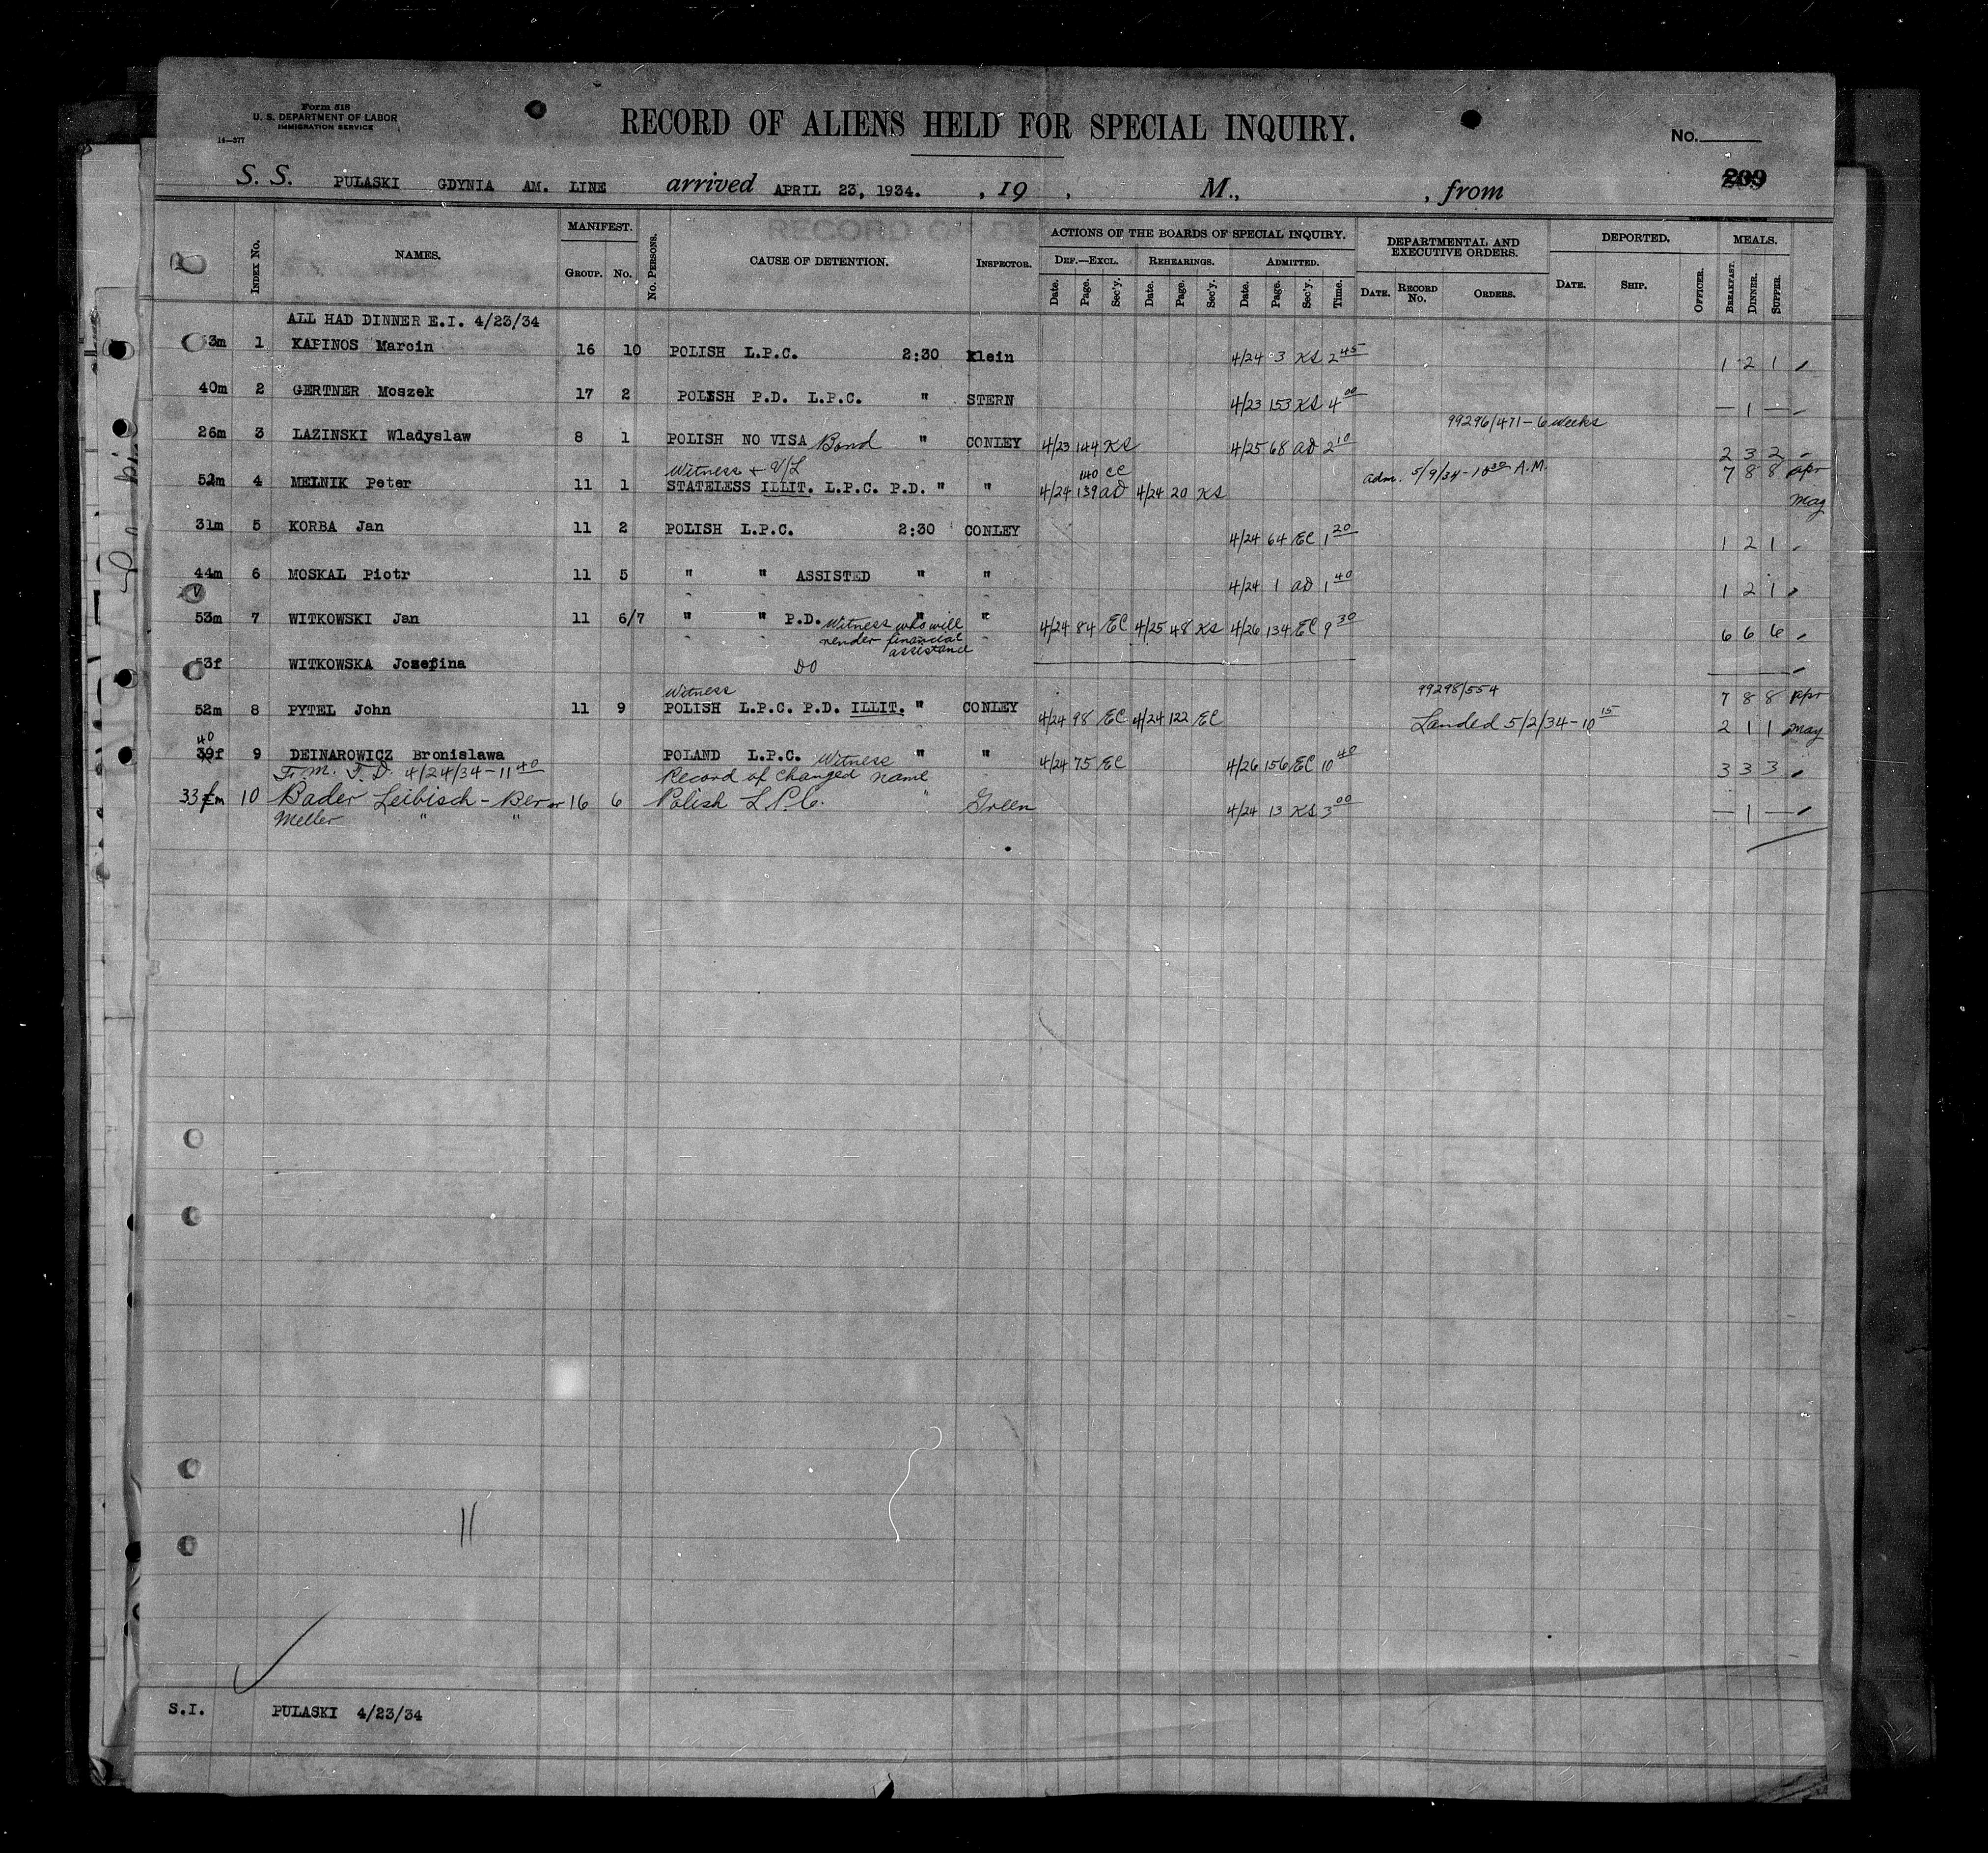 Form 518
U. S. DEPARTMENT OF LABOR
IMMIGRATION SERVICE
14—377
RECORD OF ALIENS HELD FOR SPECIAL INQUIRY.
No.
209
S. S. PULASKI GDYNIA AM. LINE arrived APRIL 23, 1934. , 19 , M., , from
INDEX No. NAMES. MANIFEST. GROUP. No. No. PERSONS. CAUSE OF DETENTION. INSPECTOR. ACTIONS OF THE BOARDS OF SPECIAL INQUIRY. DEPARTMENTAL AND EXECUTIVE ORDERS. DEPORTED. MEALS.
DEF.—EXCL. REHEARINGS. ADMITTED.
Date. Page. Sec'y. Date. Page. Sec'y. Date. Page. Sec'y. Time. DATE. RECORD No. ORDERS. DATE. SHIP. OFFICER. BREAKFAST. DINNER. SUPPER.
ALL HAD DINNER E.I. 4/23/34
3m 1 KAPINOS Marcin 16 10 POLISH L.P.C. 2:30 Klein 4/24 3 KS 2 45 1 2 1
40m 2 GERTNER Moszek 17 2 POLISH P.D. L.P.C. " STERN 4/23 153 KS 4 00 — 1 —
99296/471 - 6 weeks
26m 3 LAZINSKI Wladyslaw 8 1 POLISH NO VISA Bond " CONLEY 4/23 144 KS 4/25 68 AD 2 10 2 3 2
Witness + V/L 140 CC adm. 5/9/34 - 10 30 A.M. 7 8 8 Apr
52m 4 MELNIK Peter 11 1 STATELESS ILLIT. L.P.C. P.D. " " 4/24 139 AD 4/24 20 KS
May
31m 5 KORBA Jan 11 2 POLISH L.P.C. 2:30 CONLEY 4/24 64 EC 1 20 1 2 1
44m 6 MOSKAL Piotr 11 5 " " ASSISTED " " 4/24 1 AD 1 40 1 2 1
53m 7 WITKOWSKI Jan 11 6/7 " " P.D. Witness who will " " 4/24 84 EC 4/25 48 KS 4/26 134 EC 9 30 6 6 6
render financial
assistance
53f WITKOWSKA Josefina DO
Witness 99298/554 7 8 8 Apr
52m 8 PYTEL John 11 9 POLISH L.P.C. P.D. ILLIT. " CONLEY 4/24 98 EC 4/24 122 EC Landed 5/2/34 - 10 15 2 1 1 May
40
39f 9 DEINAROWICZ Bronislawa POLAND L.P.C. Witness " " 4/24 75 EC 4/26 156 EC 10 40 3 3 3
Tr. M. T.D. 4/24/34 - 11 40 Record of changed name
33 m 10 Bader Leibisch - Ber or 16 6 Polish L.P.C. " Green 4/24 13 KS 3 00 — 1 —
Meller " "
11
S.I. PULASKI 4/23/34